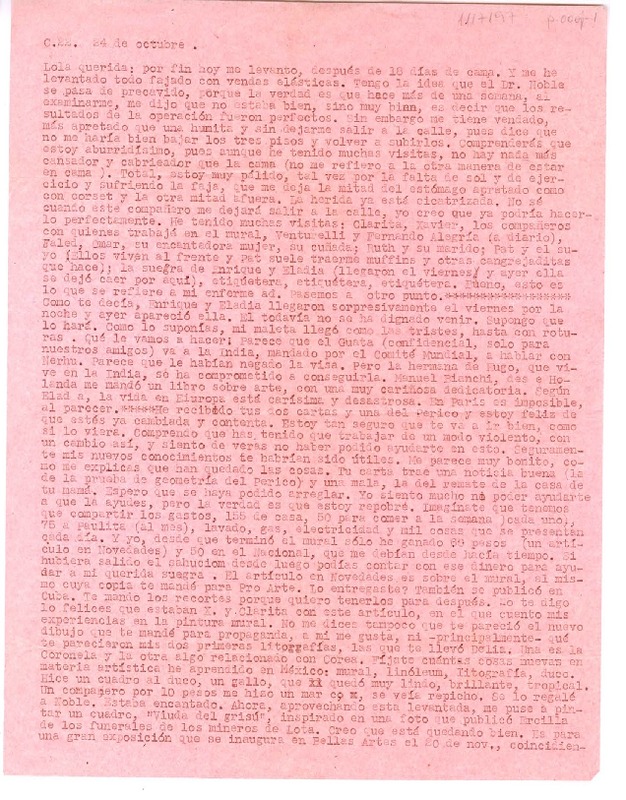 111+197 p.004-1
C.22. 24 de octubre .
Lola querida: por fin hoy me levanto, después de 18 días de cama. Y me he
levantado todo fajado con vendas elásticas. Tengo la idea que el Dr. Noble
se pasa de precavido, porque la verdad es que hace más de una semana, al
examinarme, me dijo que no estaba bien, sino muy bien, es decir que los re-
sultados de la operación fueron perfectos. Sin embargo me tiene vendado,
más apretado que una humita y sin dejarme salir a la calle, pues dice que
no me haría bien bajar los tres pisos y volver a subirlos. Comprenderás que
estoy aburridísimo, pues aunque he tenido muchas visitas, no hay nada más
cansador y cabrieador que la cama (no me refiero a la otra manera de estar
en cama ). Total, estoy muy pálido, tal vez por la falta de sol y de ejer-
cicio y sufriendo la faja, que me deja la mitad del estómago apretado como
con corset y la otra mitad afuera. La herida ya está cicatrizada. No sé
cuando este compañero me dejará salir a la calle, yo creo que ya podría hacer-
lo perfectamente. He tenido muchas visitas: Clarita, Xavier, los compañeros
con quienes trabajé en el mural, Venturelli y Fernando Alegría (a diario),
Faled, Omar, su encantadora mujer, su cuñada; Ruth y su marido; Pat y el su-
yo (Ellos viven al frente y Pat suele traerme muffins y otras cangrejaditas
que hace); la suegra de Enrique y Eladia (llegaron el viernes/ y ayer ella
se dejó caer por aquí), etiquétera, etiquétera, etiquétera. Bueno, esto es
lo que se refiere a mi enferme ad. Pasemos a otro punto.
Como te decía, Enrique y Eladia llegaron sorpresivamente el viernes por la
noche y ayer apareció ella. El todavía no se ha dignado venir. Supongo que
lo hará. Como lo suponías, mi maleta llegó como las tristes, hasta con rotu-
ras . Qué le vamos a hacer! Parece que el Guata (confidencial, solo para
nuestros amigos) va a la India, mandado por el Comité Mundial, a hablar con
Nerhu. Parece que le habían negado la visa. Pero la hermana de Hugo, que vi-
ve en la India, se ha comprometido a conseguirla. Manuel Bianchi, des e Ho-
landa me mandó un libro sobre arte, con una muy cariñosa dedicatoria. Según
Elad a, la vida en Eiuropa está carísima y desastrosa. En París es imposible,
al parecer. He recibido tus dos cartas y una del Perico y estoy feliz de
que estés ya cambiada y contenta. Estoy tan seguro que te va a ir bien, como
si lo viera. Comprendo que has tenido que trabajar de un modo violento, con
un cambio así, y siento de veras no haber podido ayudarte en esto. Seguramen-
te mis nuevos conocimientos te habrían sido útiles. Me parece muy bonito, co-
mo me explicas que han quedado las cosas. Tu carta trae una noticia buena (la
de la prueba de geometría del Perico) y una mala, la del remate de la casa de
tu mamá. Espero que se haya podido arreglar. Yo siento mucho no poder ayudarte
a que la ayudes, pero la verdad es que estoy repobré. Imagínate que tenemos
que compartir los gastos, 155 de casa, 50 para comer a la semana )cada uno,,
75 a Paulita (al mes), lavado, gas, electricidad y mil cosas que se presentan
cada día. Y yo, desde que terminó el mural sólo he ganado 89 pesos (un artí-
culo en Novedades) y 50 en el Nacional, que me debían desde hacía tiempo. Si
hubiera salido el sahuciom desde luego podías contar con ese dinero para ayu-
dar a mi querida suegra . El artículo en Novedades es sobre el mural, al mis-
mo cuya copia te mandé para Pro Arte. Lo entregaste? También se publicó en
Cuba. Te mando los recortes porque quiero tenerlos para después. No te digo
lo felices que estaban X. y Clarita con este artículo, en el que cuento mis
experiencias en la pintura mural. No me dices tampoco qué te pareció el nuevo
dibujo que te mandé para propaganda, a mí me gusta, ni -principalmente- qué
te parecieron mis dos primeras litografías, las que te llevó Delia. Una es la
Coronela y la otra algo relacionado con Corea. Fíjate cuántas cosas nuevas en
materia artística he aprendido en México: mural, linóleum, litografía, duco.
Hice un cuadro al duco, un gallo, que quedó muy lindo, brillante, tropical.
Un compañero por 10 pesos me hizo un mar co x, se veía repicho. Se lo regaló
a Noble. Estaba encantado. Ahora, aprovechando esta levantada, me puse a pin-
tar un cuadro, "Viuda del grisú", inspirado en una foto que publicó Ercilla
de los funerales de los mineros de Lota. Creo que está quedando bien. Es para
una gran exposición que se inaugura en Bellas Artes el 20 de nov., coincidien-